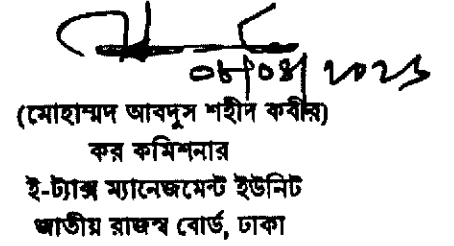 (মোহাম্মদ আবদুস শহীদ কবীর)
কর কমিশনার
ই-ট্যাক্স ম্যানেজমেন্ট ইউনিট
জাতীয় রাজস্ব বোর্ড, ঢাকা